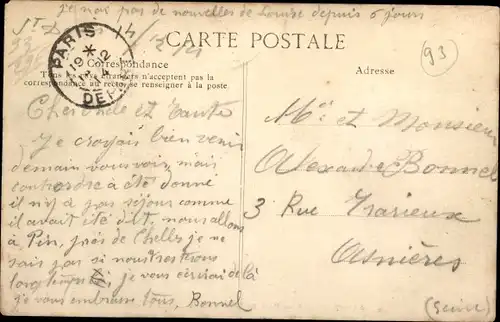 je n'ai pas de nouvelles de Louise depuis 6 jours
CARTE POSTALE
93
PARIS
DEP
Correspondance
Tous les pays étrangers n'acceptent pas la
correspondance au recto se renseigner à la poste
Adresse
Cher Oncle et Tante
Je croyais bien venir
demain vous voir, mais
contrordre a été donné
il n'y a pas séjour comme
il avait été dit, nous allons
à Pin, près de Chelles je ne
sais pas si nous resterons
longtemps, je vous écrirai de là
je vous embrasse tous, Bonnel
Me et Monsieur
Alexandre Bonnel
3 Rue Trarieux
Asnières
(Seine)